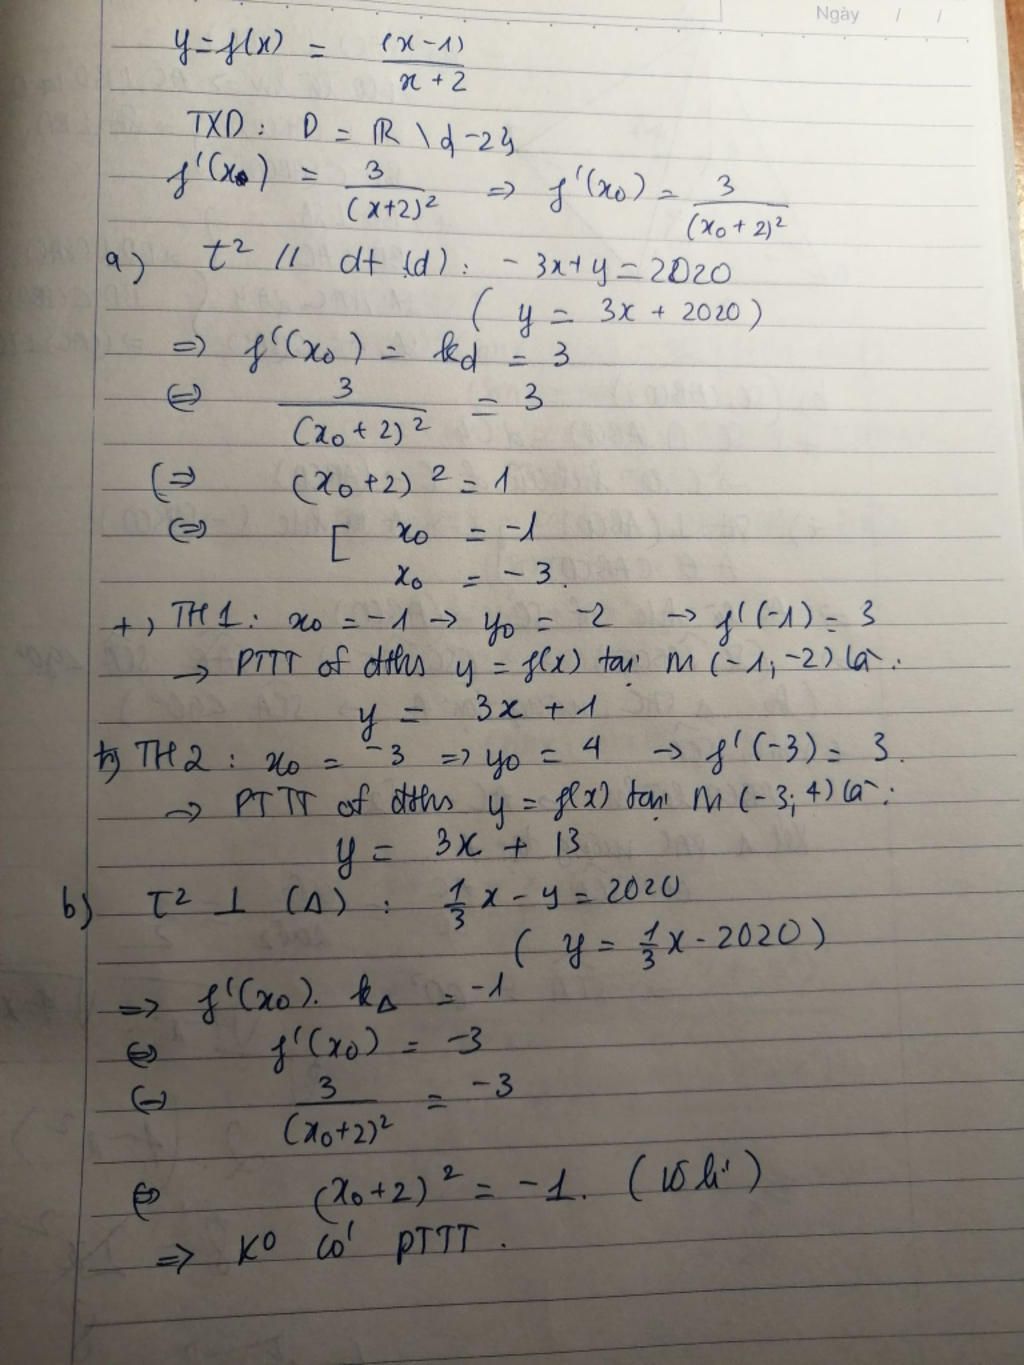 Ngày / /
y = f(x) = (x-1)/(x+2)
TXD: D = ℝ \ {-2}
f'(x₀) = 3/(x+2)² => f'(x₀) = 3/(x₀+2)²
a) t² // dt (d): -3x+y = 2020
( y = 3x + 2020)
=> f'(x₀) = kd = 3
<=> 3/(x₀+2)² = 3
<=> (x₀+2)² = 1
<=> [ x₀ = -1
x₀ = -3.
+) TH1: x₀ = -1 → y₀ = -2 → f'(-1) = 3
→ PTTT of đths y = f(x) tại M (-1; -2) là:
y = 3x + 1
+) TH2: x₀ = -3 => y₀ = 4 → f'(-3) = 3.
→ PTTT of đths y = f(x) tại M (-3; 4) là:
y = 3x + 13
b) t² ⊥ (Δ): 1/3 x - y = 2020
( y = 1/3 x - 2020)
=> f'(x₀). kΔ = -1
<=> f'(x₀) = -3
<=> 3/(x₀+2)² = -3
<=> (x₀+2)² = -1. (vô lí)
=> K⁰ có PTTT.